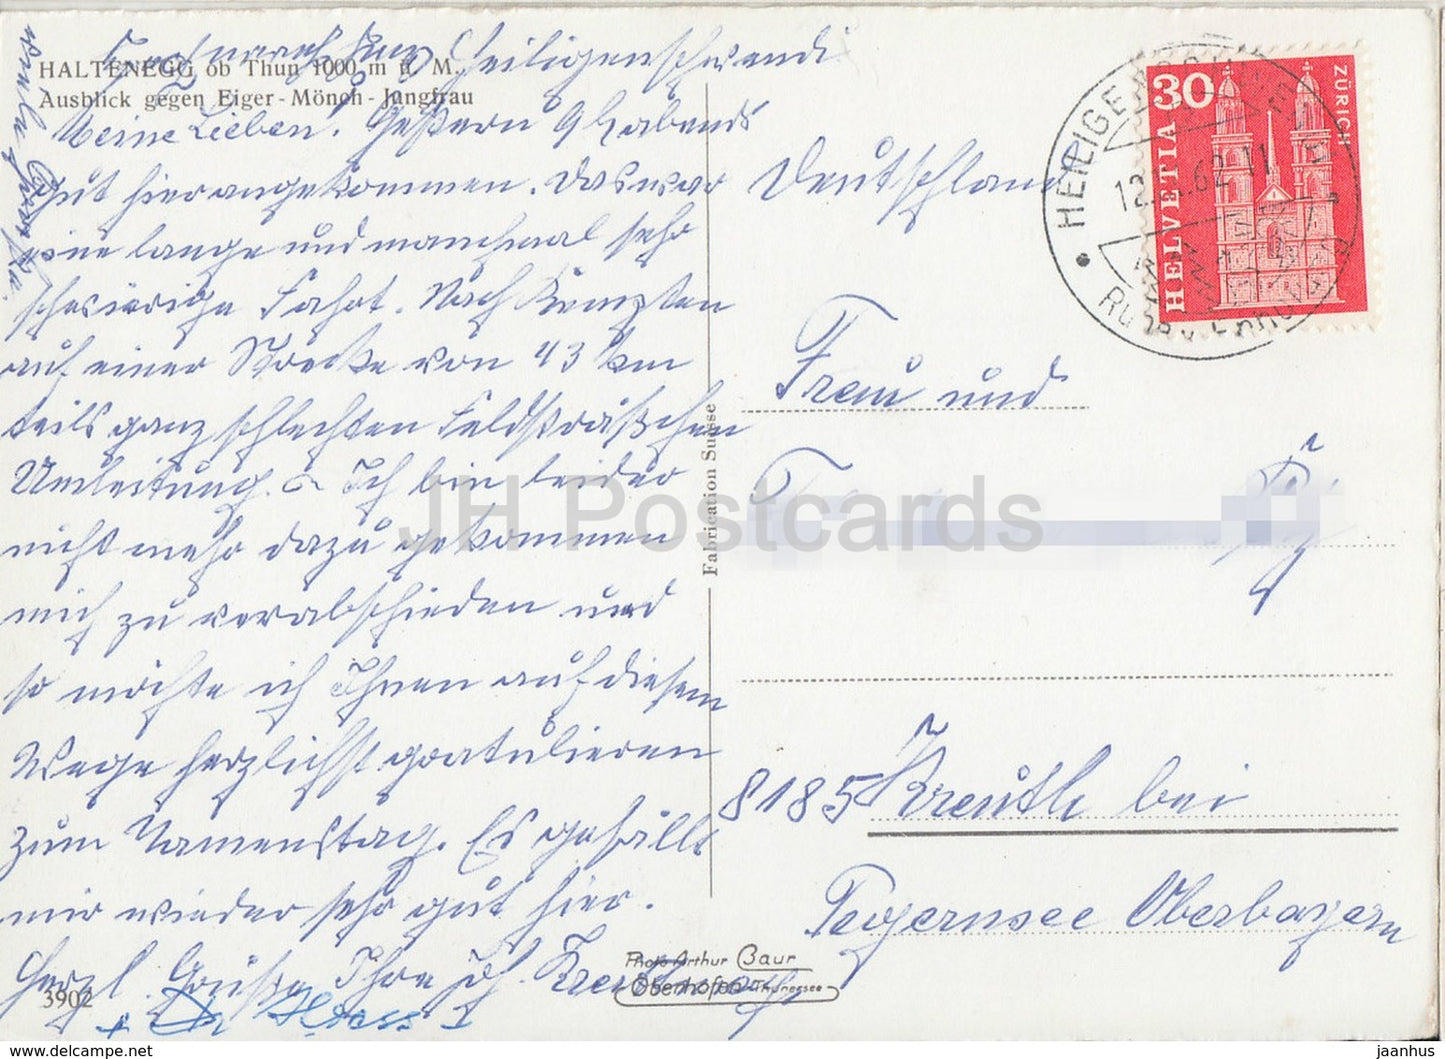 Heiligenschwendi
HALTENEGG ob Thun 1000 m ü. M.
Ausblick gegen Eiger - Mönch - Jungfrau
Meine Lieben. Gestern 9 h abends
gut hier angekommen. Das war
eine lange und manchmal sehr
schwierige Fahrt. Nach Kempten
auf einer Strecke von 43 km
teils ganz schlechten Feldsträßchen
Umleitung. Ich bin leider
nicht mehr dazu gekommen
mich zu verabschieden und
so möchte ich Ihnen auf diesem
Wege herzlichst gratulieren
zum Namenstag. Es gefällt
mir wieder sehr gut hier.
Herzl. Grüße Ihre
3902
Fabrication Suisse
Photo Arthur Baur
Oberhofen Thunersee
HEILIGE
12. 62-11
30
HELVETIA
ZÜRICH
Deutschland
Frau und
8185 Kreuth bei
Tegernsee Oberbayern
JH Postcards
www.delcampe.net
jaanhus